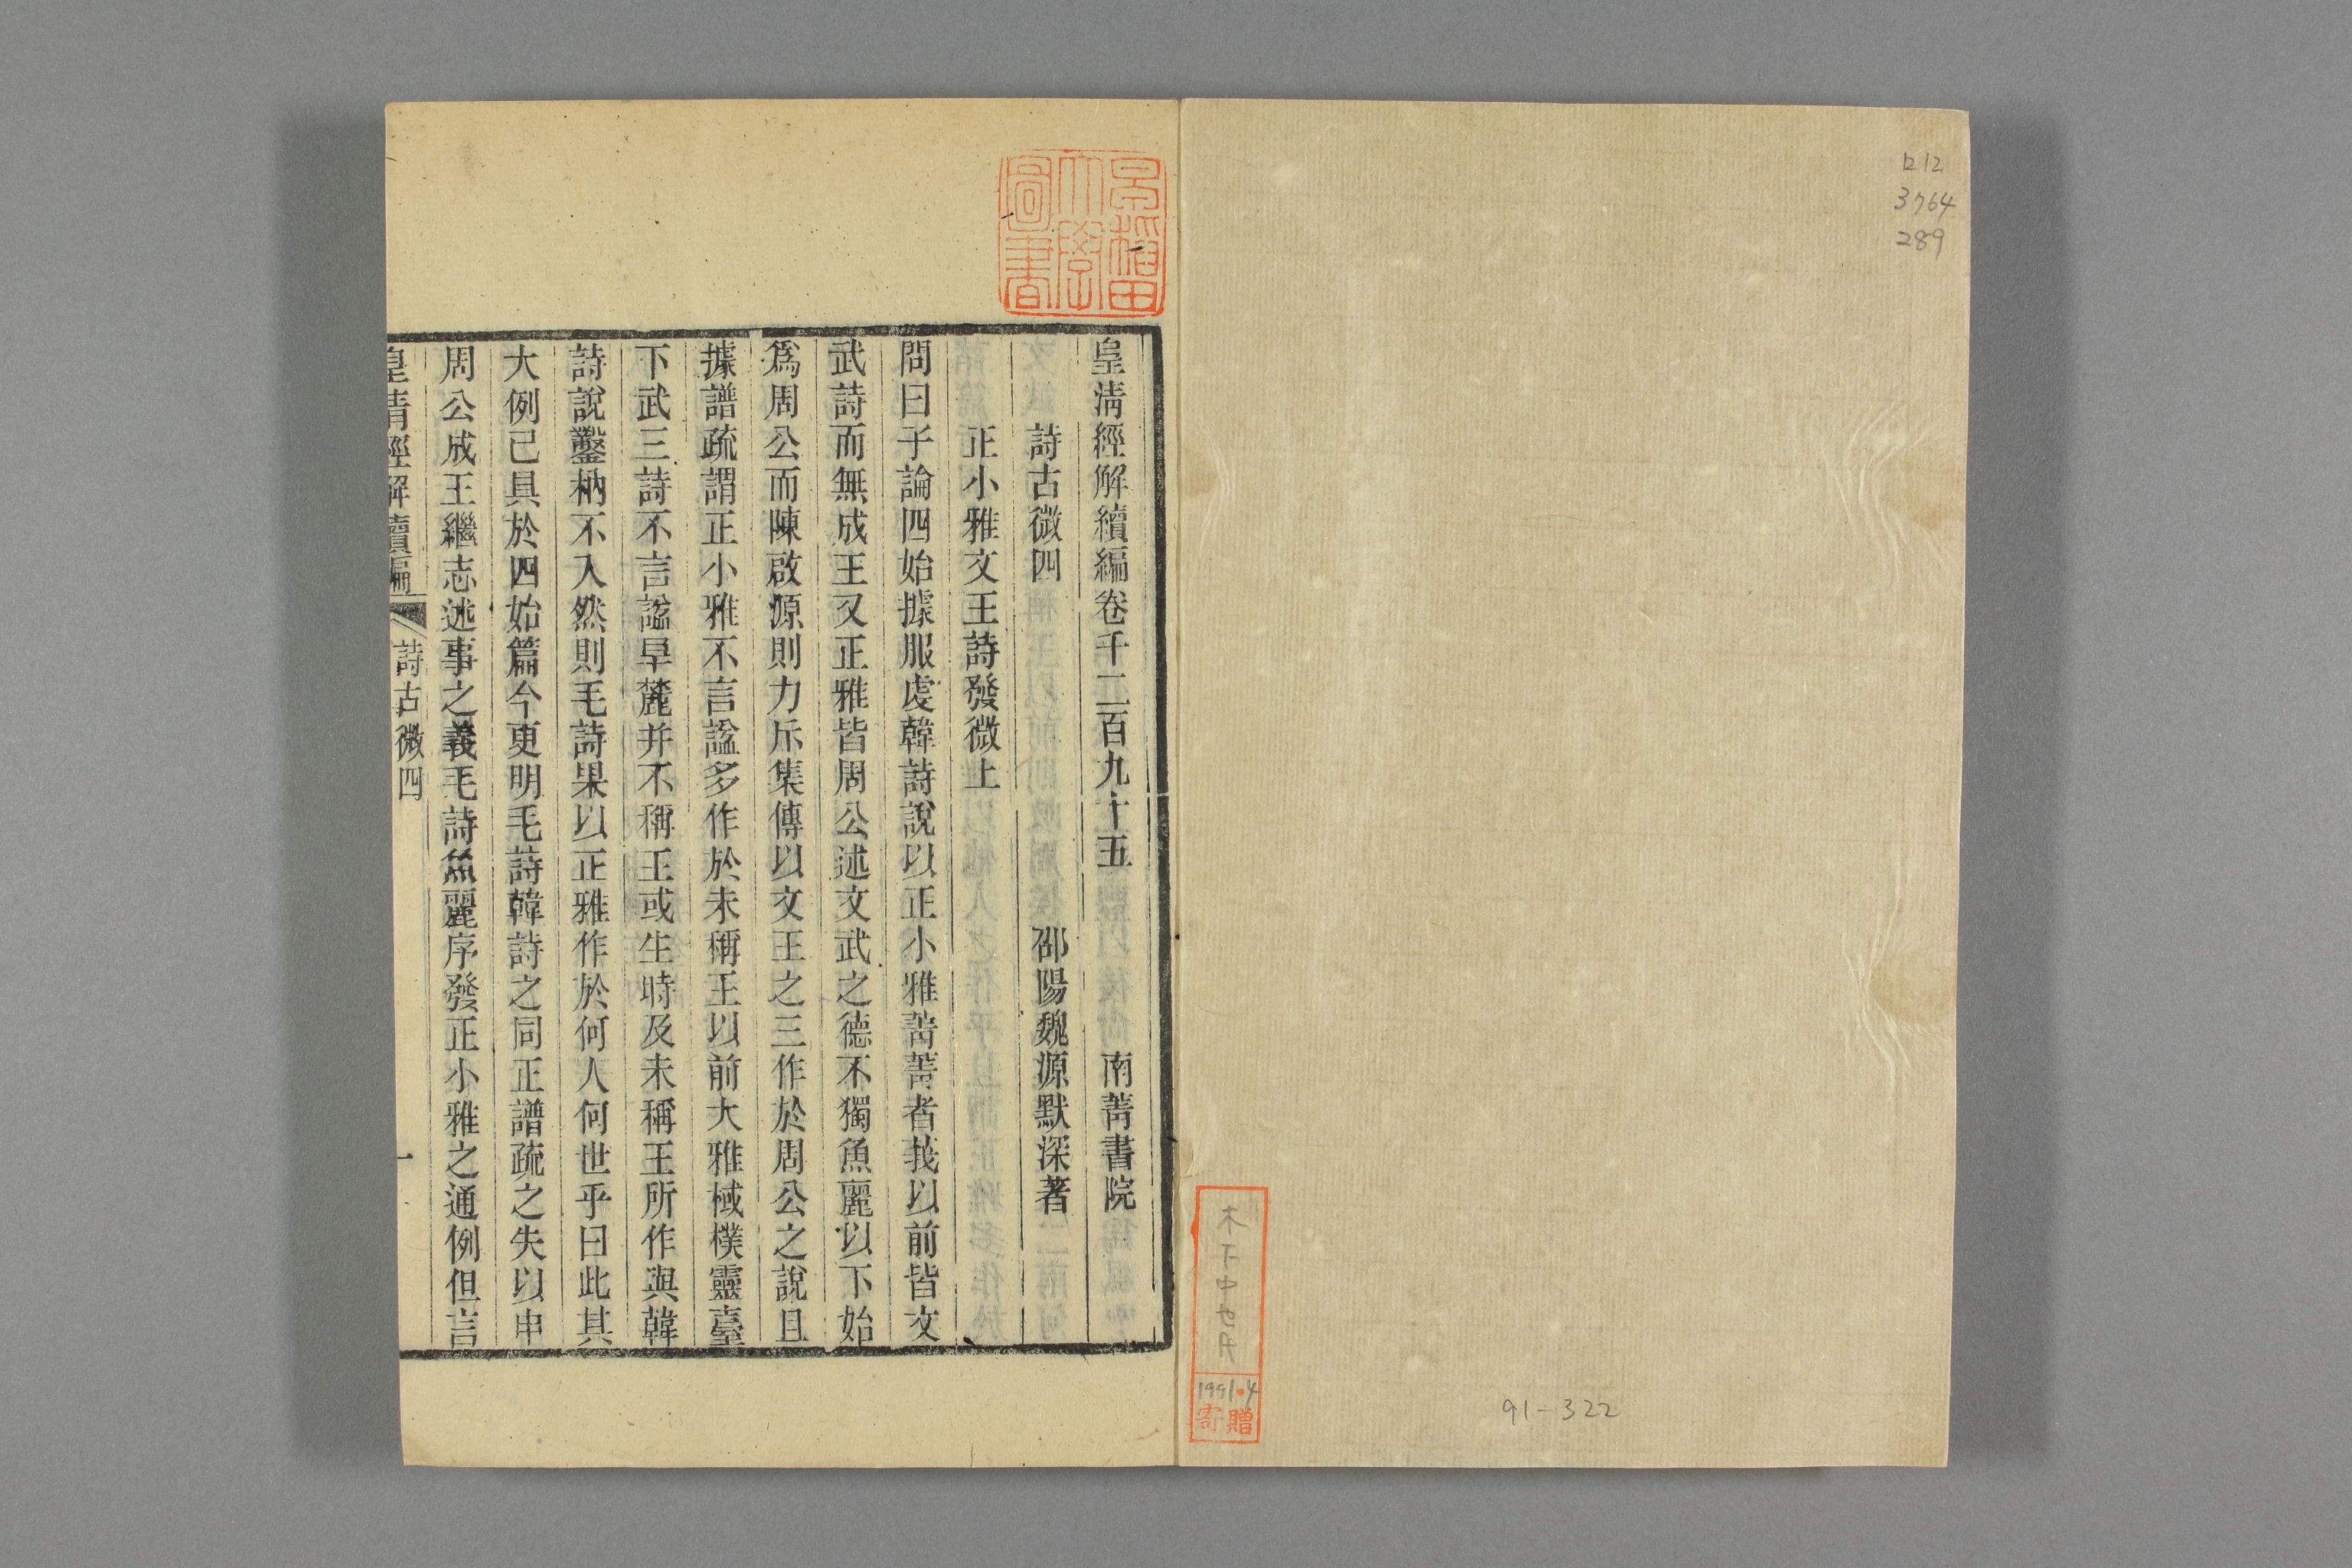 ロ12
3764
289
木下中也月
1991.4
寄贈
91-322
早稲田大學圖書
皇清經解續編卷千二百九十五 南菁書院
詩古微四 邵陽魏源默深著
正小雅文王詩發微上
問曰子論四始據服虔韓詩說以正小雅菁菁者莪以前皆文
武詩而無成王又正雅皆周公述文武之德不獨魚麗以下始
爲周公而陳啟源則力斥集傳以文王之三作於周公之說且
據譜疏謂正小雅不言謚多作於未稱王以前大雅棫樸靈臺
下武三詩不言謚旱麓并不稱王或生時及未稱王所作與韓
詩說鑿枘不入然則毛詩果以正雅作於何人何世乎曰此其
大例已具於四始篇今更明毛詩韓詩之同正譜疏之失以申
周公成王繼志述事之義毛詩魚麗序發正小雅之通例但言
皇清經解續編 詩古微四 一